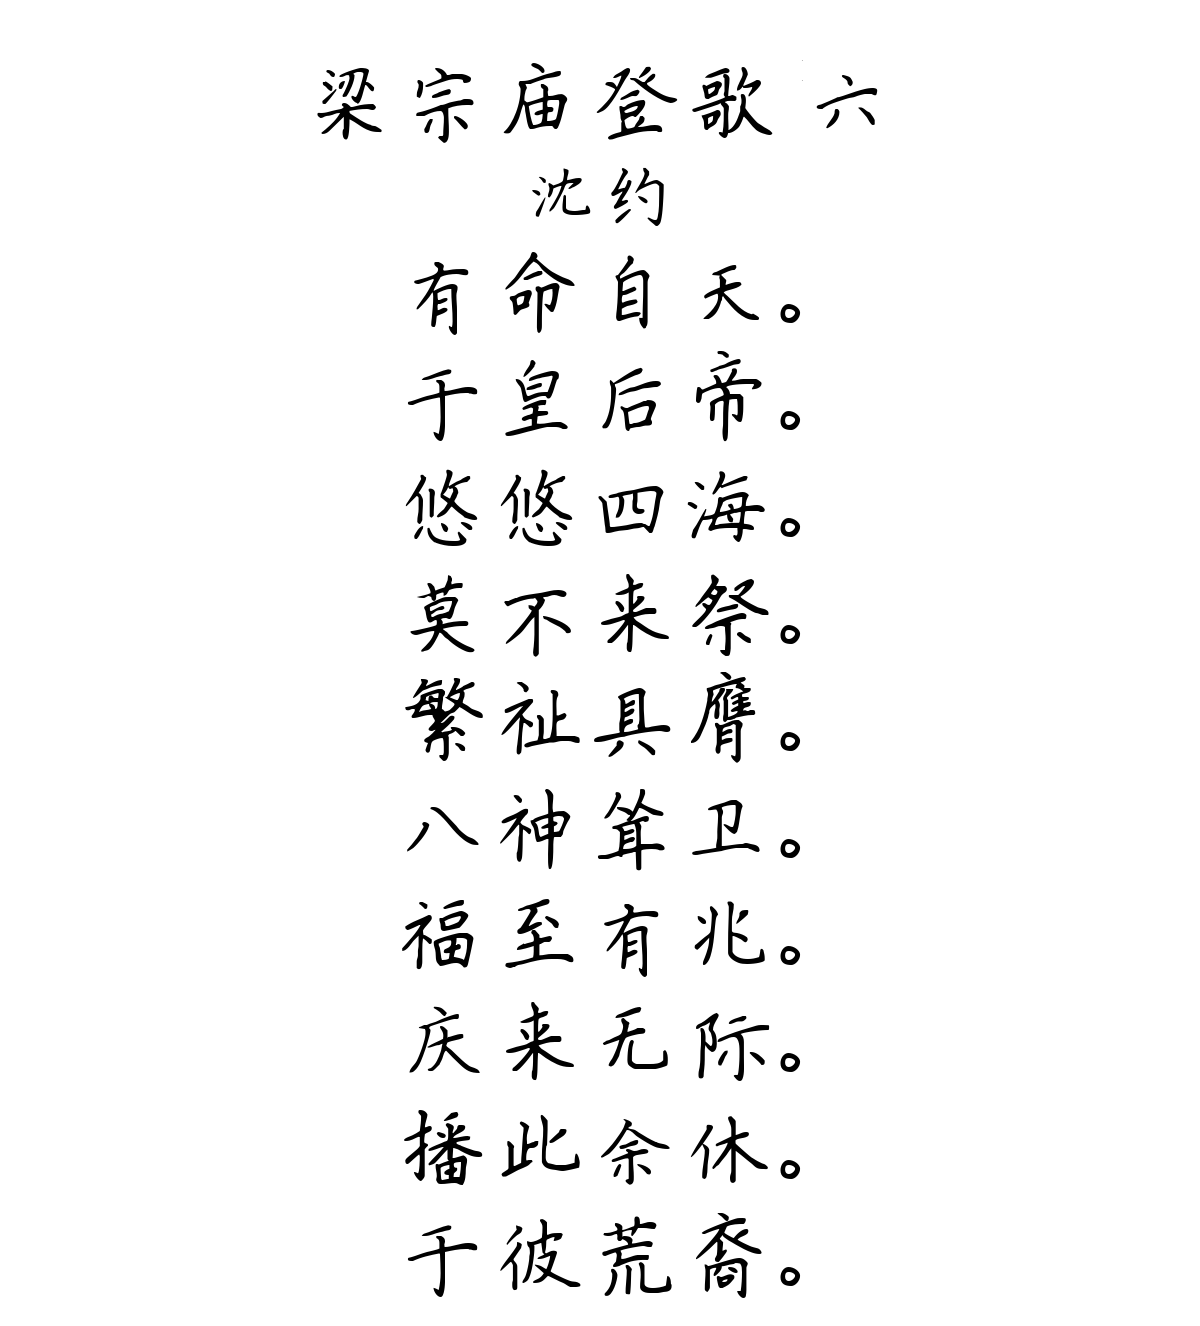 梁宗庙登歌 六
沈约
有命自天。
于皇后帝。
悠悠四海。
莫不来祭。
繁祉具膺。
八神耸卫。
福至有兆。
庆来无际。
播此余休。
于彼荒裔。